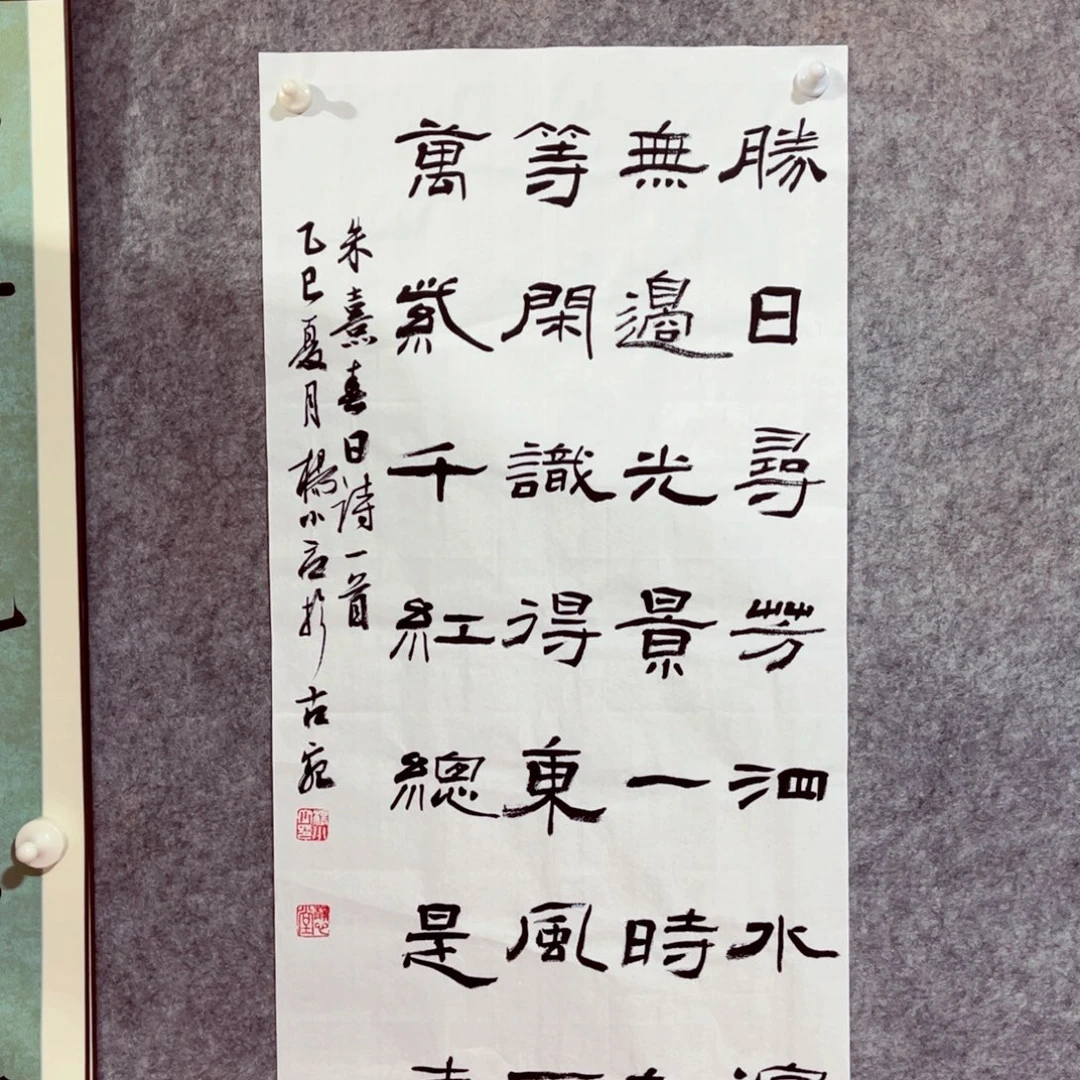 勝日尋芳泗水
無邊光景一時
等閑識得東風
萬紫千紅總是
朱熹春日诗一首
乙巳夏月楊小立於古宛